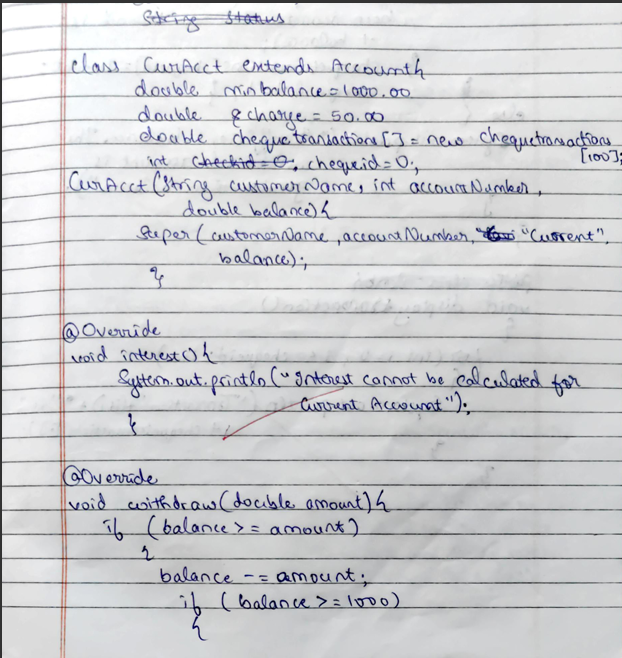 String Status
class CurAcct extends Account{
double minbalance=1000.00
double charge = 50.00
double chequetransactions[] = new chequetransactions
[100];
int checkid=0; chequeid=0;
CurAcct(String customerName, int accountNumber,
double balance){
super(customerName, accountNumber, "Current",
balance);
}
@Override
void interest(){
System.out.println("Interest cannot be calculated for
Current Account");
}
@Override
void withdraw(double amount){
if (balance>=amount)
{
balance -= amount;
if (balance>=1000)
{